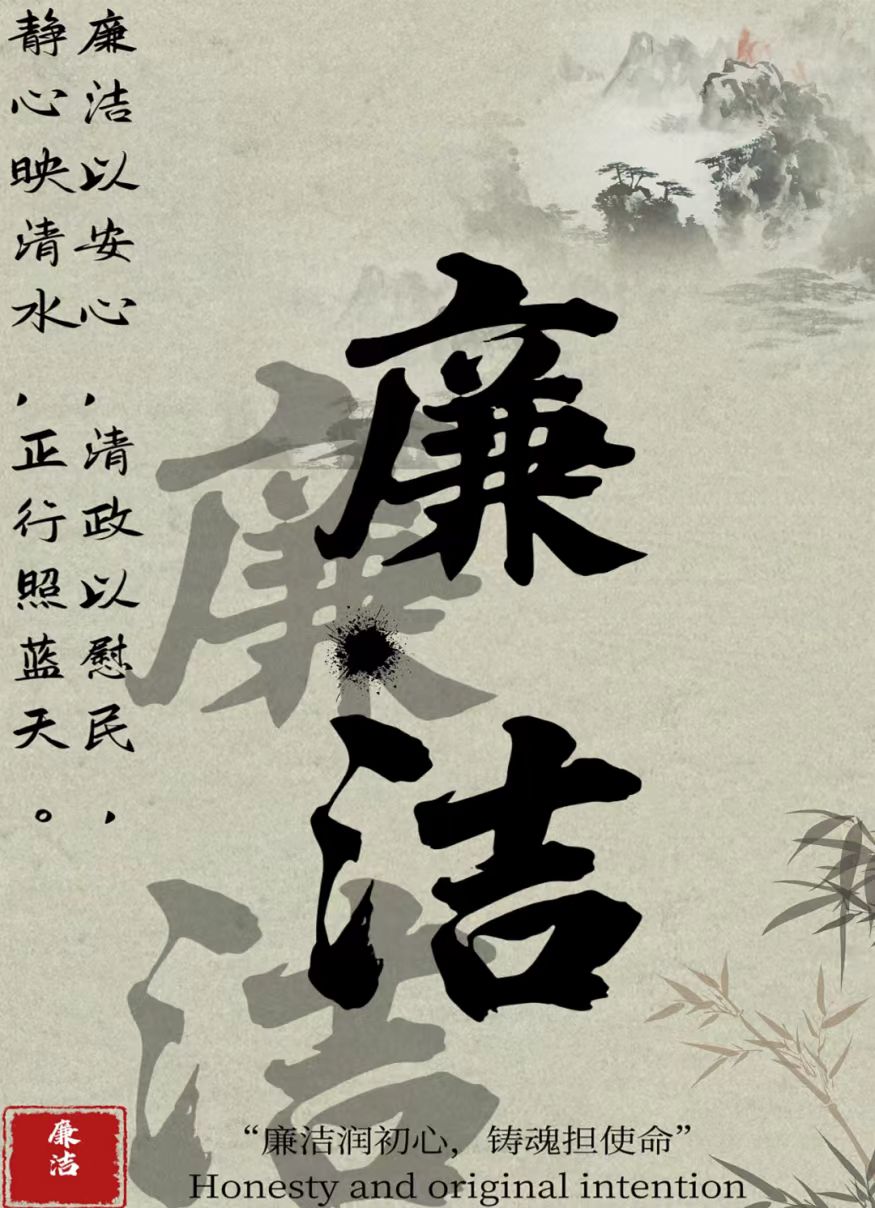 廉洁以安心,清政以慰民,
静心映清水,正行照蓝天。
廉
洁
廉
洁
廉洁
“廉洁润初心,铸魂担使命”
Honesty and original intention